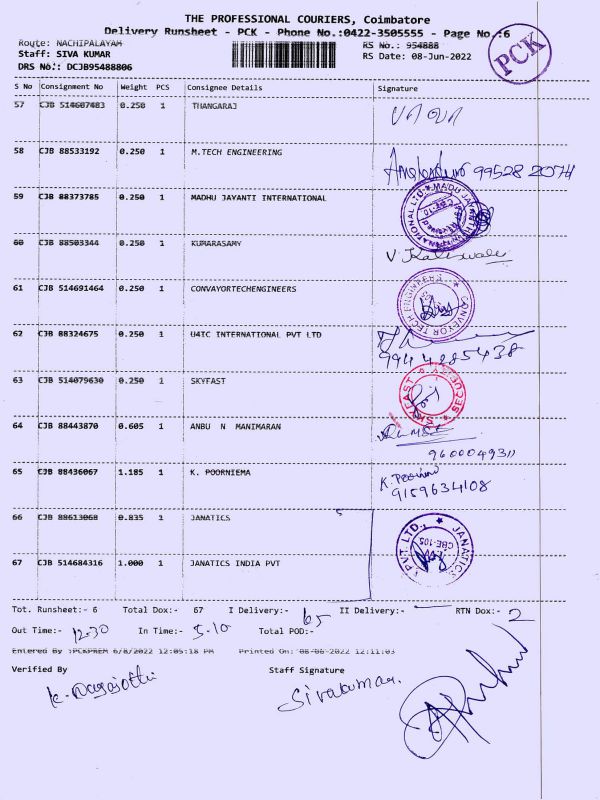 THE PROFESSIONAL COURIERS, Coimbatore
Delivery Runsheet - PCK - Phone No.:0422-3505555 - Page No.:6
Route: NACHIPALAYAM
RS No.: 954888
PCK
Staff: SIVA KUMAR
RS Date: 08-Jun-2022
DRS No.: DCJB95488806
S No Consignment No Weight PCS Consignee Details Signature
57 CJB 514607483 0.250 1 THANGARAJ
58 CJB 88533192 0.250 1 M.TECH ENGINEERING
99528 20574
59 CJB 88373785 0.250 1 MADHU JAYANTI INTERNATIONAL
60 CJB 88503344 0.250 1 KUMARASAMY
61 CJB 514691464 0.250 1 CONVAYORTECHENGINEERS
CONVEYOR TECH ENGINEERS
62 CJB 88324675 0.250 1 U4IC INTERNATIONAL PVT LTD
9944285438
63 CJB 514079630 0.250 1 SKYFAST
SKYFAST SECURITY
64 CJB 88443870 0.605 1 ANBU N MANIMARAN
9600049311
65 CJB 88436067 1.185 1 K. POORNIEMA
9159634108
66 CJB 88613068 0.835 1 JANATICS
67 CJB 514684316 1.000 1 JANATICS INDIA PVT
JANATICS PVT. LTD. CBE-105
Tot. Runsheet:- 6 Total Dox:- 67 I Delivery:- 65 II Delivery:- RTN Dox:- 2
Out Time:- 12.30 In Time:- 5.10 Total POD:-
Entered By :PCKPREM 6/8/2022 12:05:18 PM Printed On: 08-06-2022 12:11:03
Verified By Staff Signature
Sivakumar.